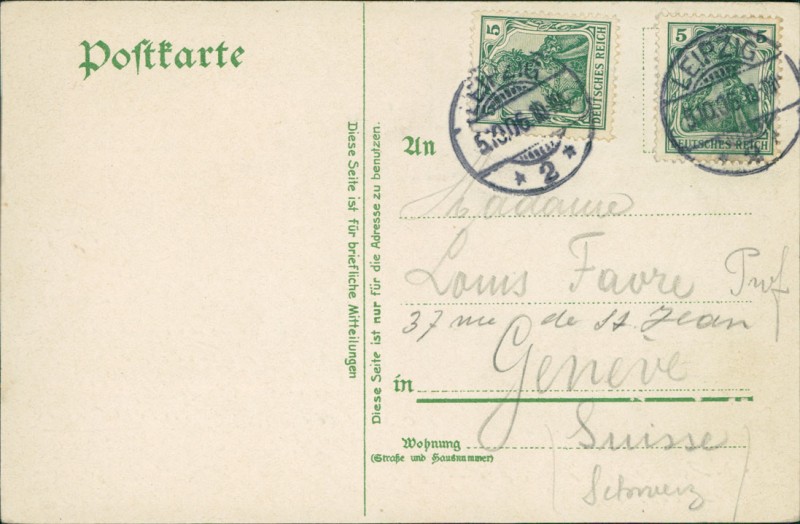 Postkarte
5
DEUTSCHES REICH
5 5
DEUTSCHES REICH
LEIPZIG
5.10.06.
* 2 *
LEIPZIG
Diese Seite ist für briefliche Mitteilungen
Diese Seite ist nur für die Adresse zu benutzen.
An
Madame
Louis Favre Prof
37 rue de St. Jean
in Genève
Wohnung
(Straße und Hausnummer)
(Suisse)
Schweiz